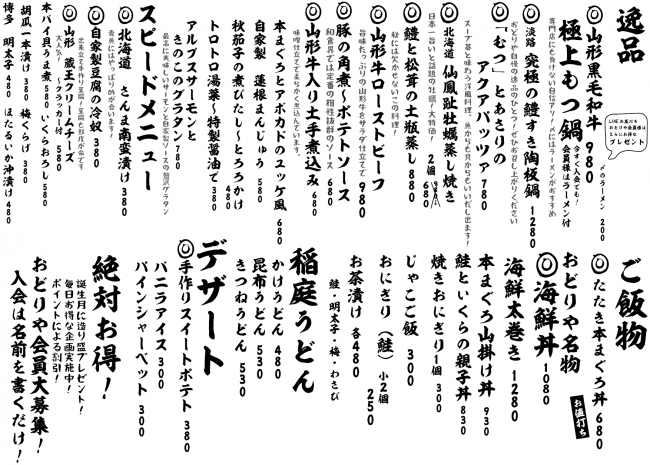 逸品
◎山形黒毛和牛
極上もつ鍋 980
今すぐ入会でも!
会員様はラーメン付
〆のラーメン 200
LINEお友だち
おどりや会員様は
もちろんお得な
プレゼント
専門店にも負けない自信アリ!〆にはラーメンがおすすめ
◎淡路 究極の鱧すき陶板鍋 1280
おどりや自慢の逸品のひとつ!ぜひお召し上がりください
◎「むつ」とあさりの
アクアパッツァ 780
スープ算と味わう洋風料理。魚からも貝からもいいだし出ます!
◎北海道 仙鳳趾牡蠣蒸し焼き 2個 680
日本一旨いと話題の牡蠣!大特価!
◎鱧と松茸の土瓶蒸し 880
秋には欠かせないこの料理!
◎山形牛ローストビーフ 980
旨味たっぷりの山形牛をサラダ仕立てで
◎豚の角煮〜ポテトソース 680
和食界では定番の相性抜群のソース
◎山形牛入り土手煮込み 680
味噌仕立てで柔らかく煮込んでいます。
本まぐろとアボカドのユッケ風 680
自家製 蓮根まんじゅう 580
秋茄子の煮びたし〜とろろかけ 480
トロトロ湯葉〜特製醤油で 380
アルプスサーモンと
きのこのグラタン 780
最高に美味しいサーモンと自家製ソースの贅沢グラタン
スピードメニュー
◎北海道 さんま南蛮漬け 380
南蛮にはやっぱり酢が合います!
◎自家製豆腐の冷奴 380
注文仕立て手作り豆腐!豆腐もお店が命です
◎山形 蔵王クリームチーズ
〜クラッカー付 580
大人気!
胡瓜一本漬け 380 梅くらげ 380
本バイ貝うま煮 580 いくらおろし 580
博多 明太子 480 ほたるいか沖漬け 480
ご飯物
◎たたき本まぐろ丼 680
おどりや名物
◎海鮮丼 1080
お値打ち
海鮮太巻き 1280
本まぐろ山掛け丼 930
鮭といくらの親子丼 830
焼きおにぎり 1個 300
じゃこご飯 300
おにぎり(鮭) 小2個 250
お茶漬け 各480
鮭・明太子・梅・わさび
稲庭うどん
かけうどん 480
昆布うどん 530
きつねうどん 530
デザート
◎手作りスイートポテト 380
バニラアイス 300
パインシャーベット 300
絶対お得!
誕生月に造り盛プレゼント!
毎日お得な企画実施中!
ポイントによる割引!
おどりや会員大募集!
入会は名前を書くだけ!